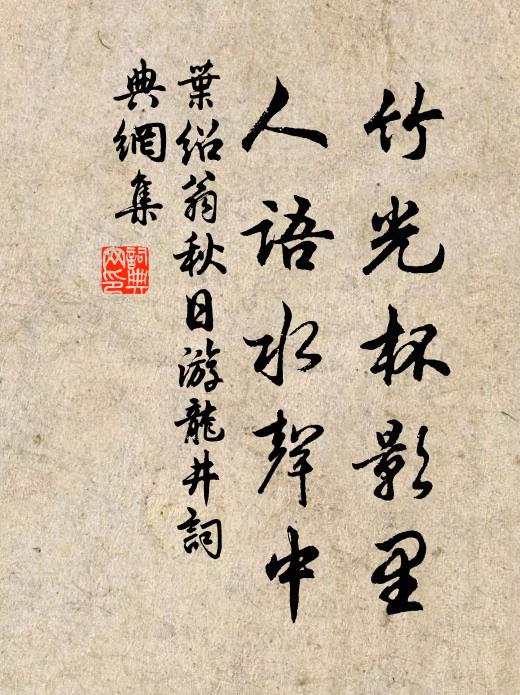 竹光杯影里
人語水聲中
葉紹翁秋日游龍井詞
典網集
詞典
网印